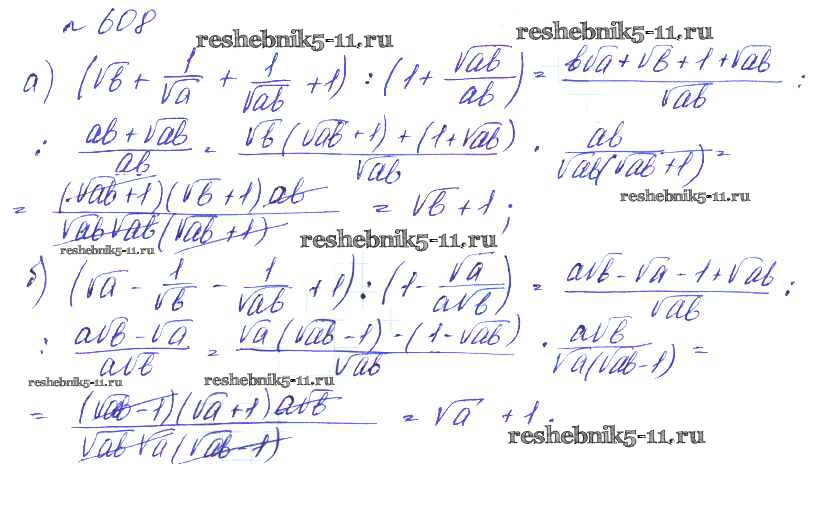 № 608
reshebnik5-11.ru reshebnik5-11.ru
а) (√b + 1/√a + 1/√ab + 1) : (1 + √ab/ab) = (b√a + √b + 1 + √ab)/√ab :
: (ab + √ab)/ab = (√b(√ab + 1) + (1 + √ab))/√ab · ab/(√ab(√ab + 1)) =
reshebnik5-11.ru
= ((√ab + 1)(√b + 1)ab)/(√ab√ab(√ab + 1)) = √b + 1;
reshebnik5-11.ru reshebnik5-11.ru
б) (√a - 1/√b - 1/√ab + 1) : (1 - √a/a√b) = (a√b - √a - 1 + √ab)/√ab :
: (a√b - √a)/a√b = (√a(√ab - 1) - (1 - √ab))/√ab · a√b/(√a(√ab - 1)) =
reshebnik5-11.ru reshebnik5-11.ru
= ((√ab - 1)(√a + 1)a√b)/(√ab√a(√ab - 1)) = √a + 1.
reshebnik5-11.ru